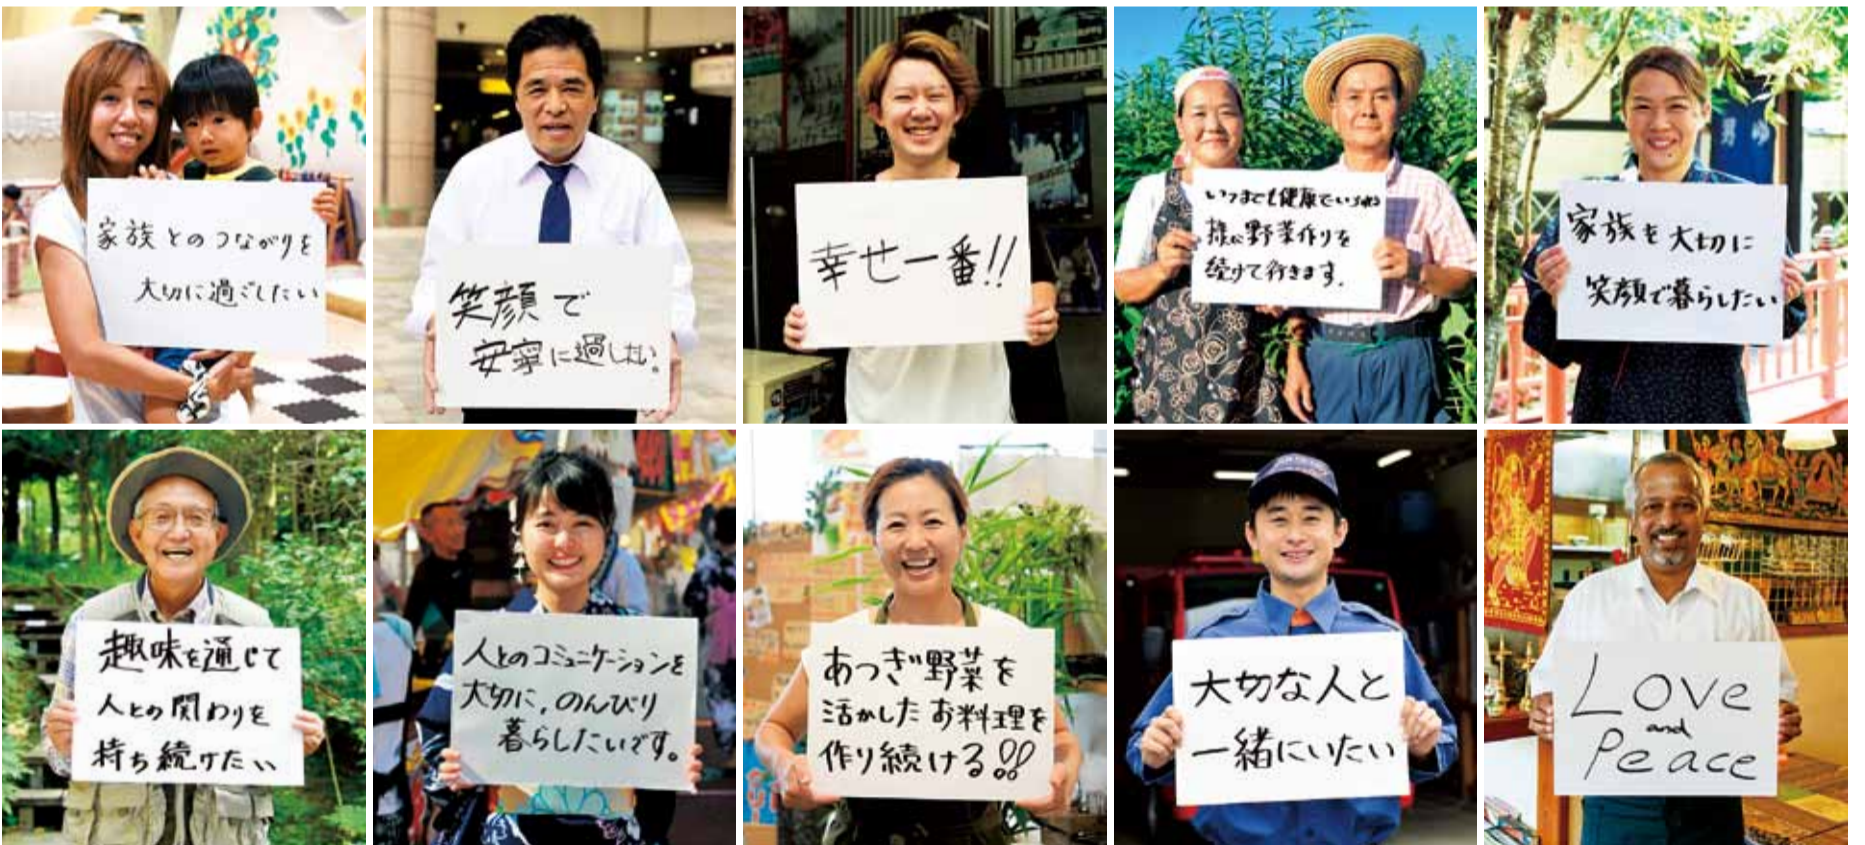 家族とのつながりを
大切に過ごしたい
笑顔で
安寧に過したい。
幸せ一番!!
いつまでも健康でいられる
様に野菜作りを
続けて行きます.
家族を大切に
笑顔で暮らしたい
趣味を通じて
人との関わりを
持ち続けたい
人とのコミュニケーションを
大切に,のんびり
暮らしたいです。
あつぎ野菜を
活かしたお料理を
作り続ける!!
大切な人と
一緒にいたい
LOVE
and
Peace